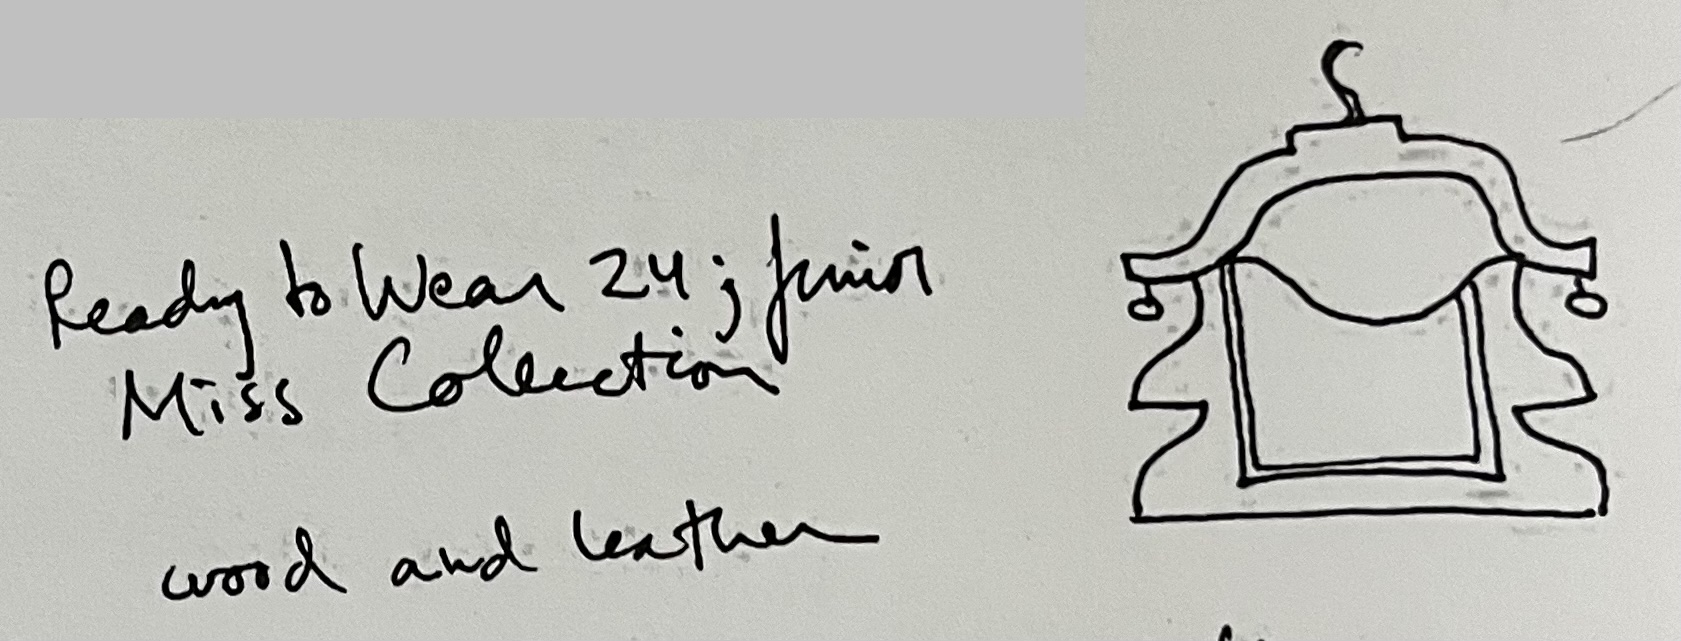 Ready to Wear 24; Junior
Miss Collection
wood and leather